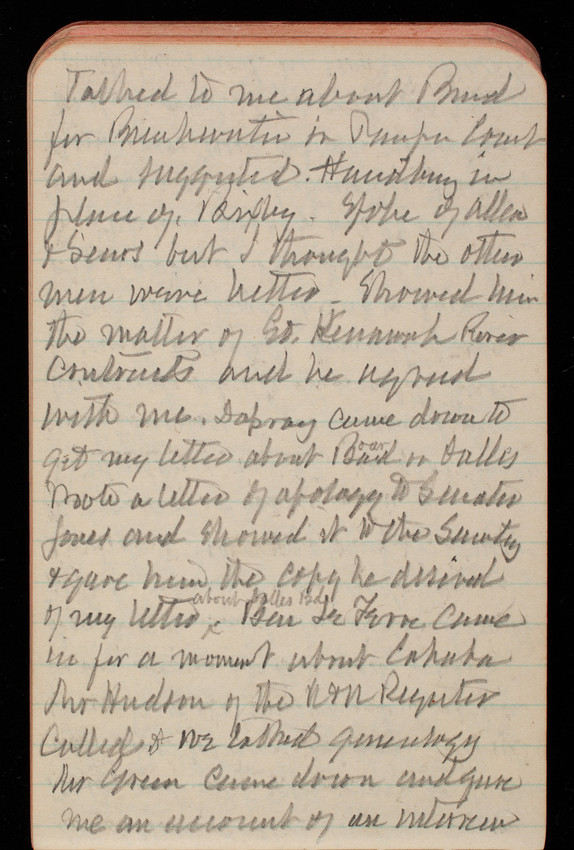 Talked to me about Board
for Breakwater in
and suggested. Handbury in
place of. Bixby. Spoke of Allen
& Sears but I thought the other
men were better - Showed him
the matter of Gt. Kenawah River
Contracts and he agreed
with me. Dapray came down to
get my letter about Board on Dalles
Wrote a letter of apology to Senator
Jones and showed it to the Secretary
& gave him the copy he desired
of my letter about Dalles Bd. Ben Le Fevre came
in for a moment about Cahaba
Mr Hudson of the N&N Register
Called & we talked genealogy
Mr Green came down and gave
me an account of an interview